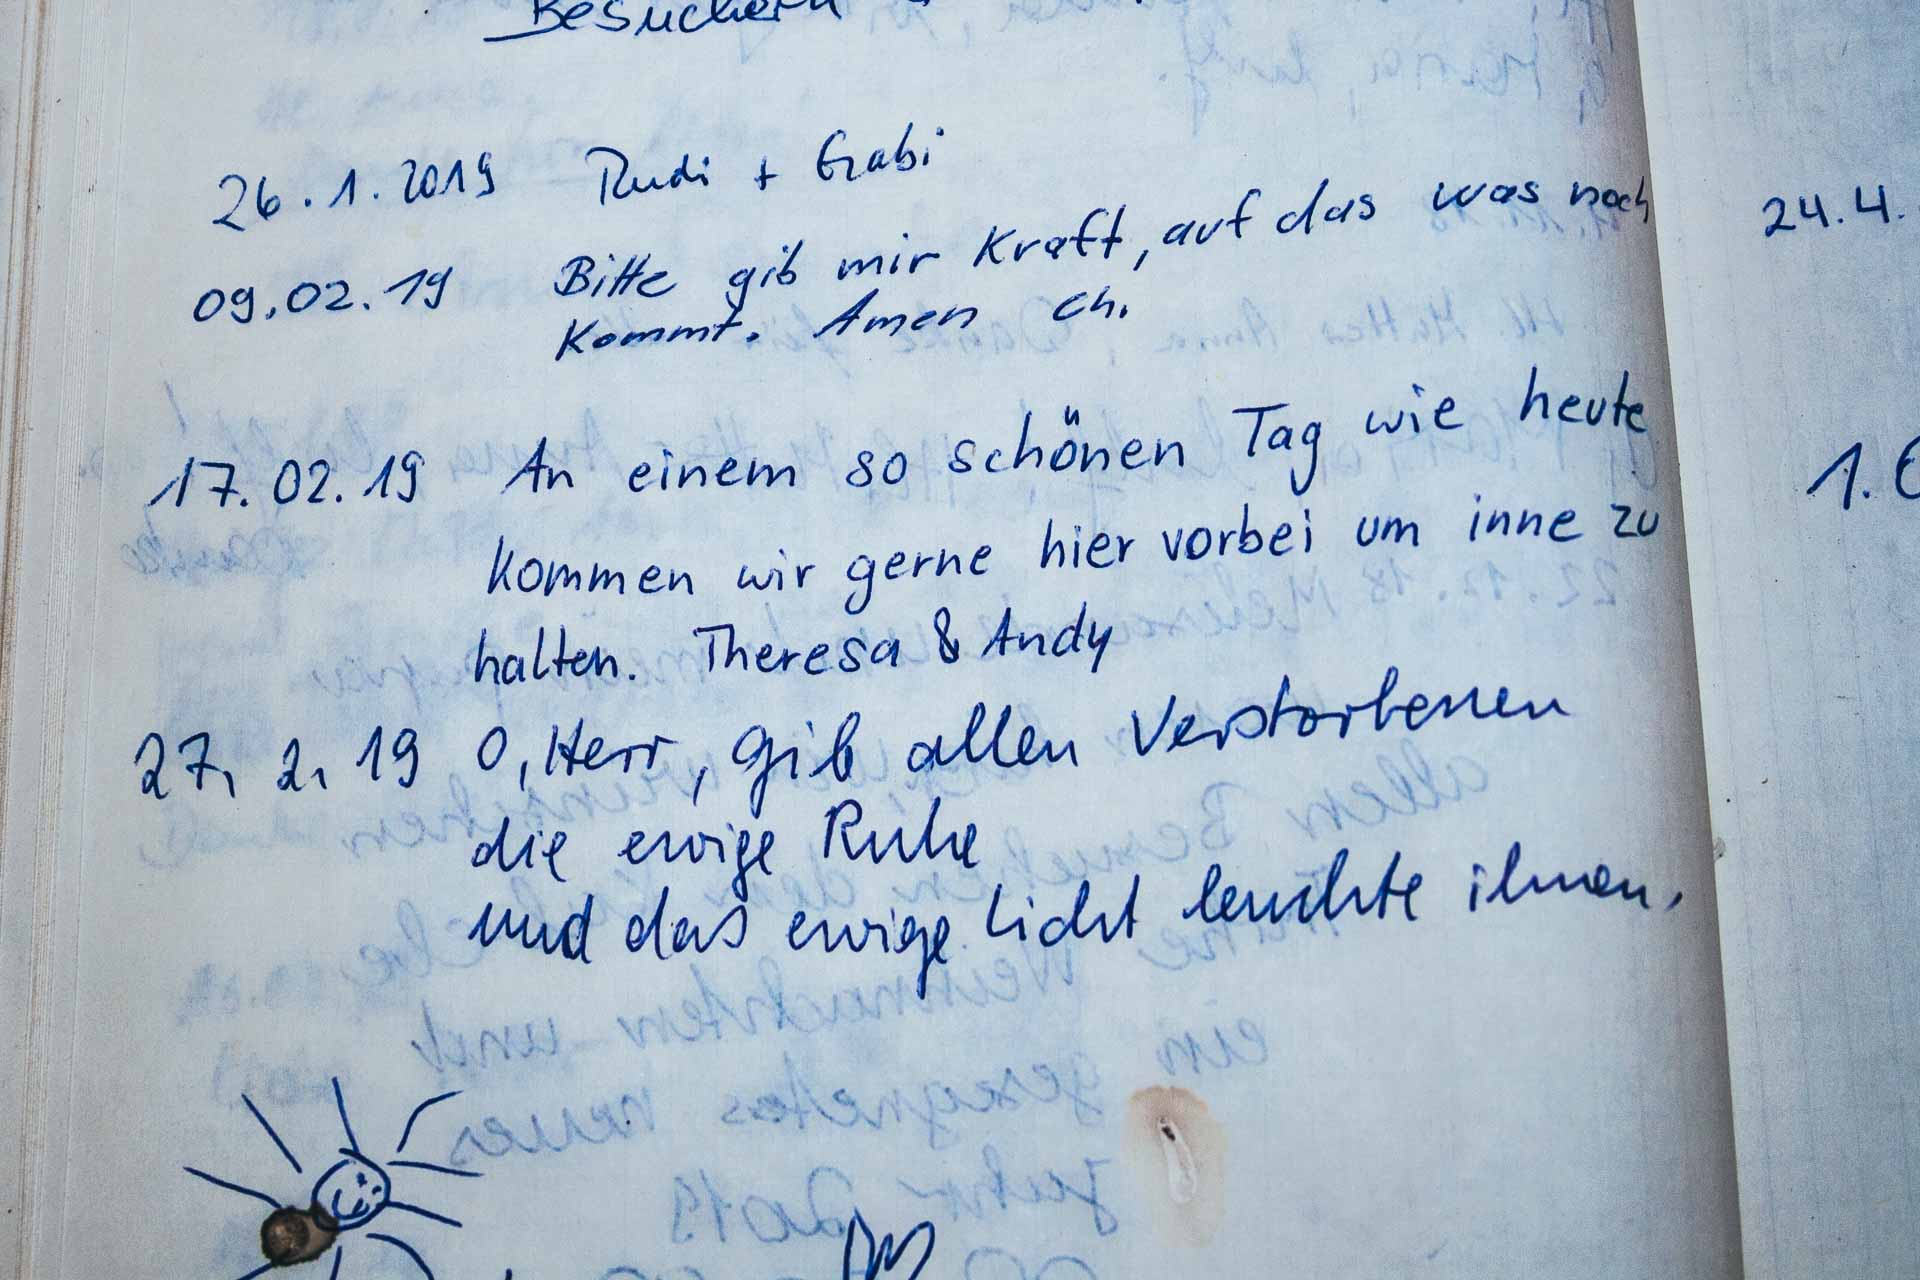 Besuchern
26.1.2019 Rudi + Gabi
09.02.19 Bitte gib mir Kraft, auf das was noch
kommt. Amen Ch.
17.02.19 An einem so schönen Tag wie heute
kommen wir gerne hier vorbei um inne zu
halten. Theresa & Andy
27. 2. 19 O, Herr, gib allen Verstorbenen
die ewige Ruhe
und das ewige Licht leuchte ihnen.
24.4.
1.